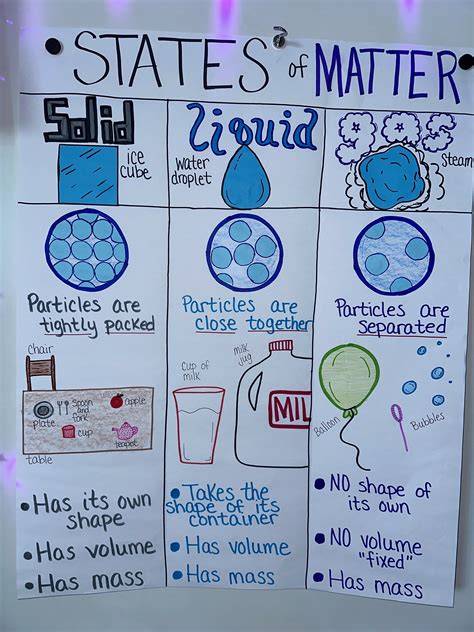 STATES of MATTER
Solid
ice
cube
Particles are
tightly packed
chair
plate
Spoon
and
fork
apple
cup
teapot
table
Has its own
shape
Has volume
Has mass
Liquid
Water
droplet
Particles are
close together
cup of
milk
milk
jug
MIL
Takes the
shape of its
container
Has volume
Has mass
gas
Steam
Particles are
separated
Balloon
Bubbles
NO shape of
its own
NO volume
"fixed"
Has mass